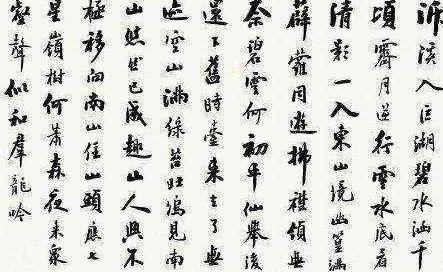 泝溪入江湖碧水涵千
頃霽月逆行雲水底看
清影一入東山境幽篁滿
薜蘿同遊拂 無
奈碧雲何初平仙舉後
還下舊時臺來去了無
迹空山滿綠苔旺塢見南
山悠然已成趣山人興不
極移向南山住山頭應七
星嶺樹何蕭森夜來衆
壑聲似和羣龍吟